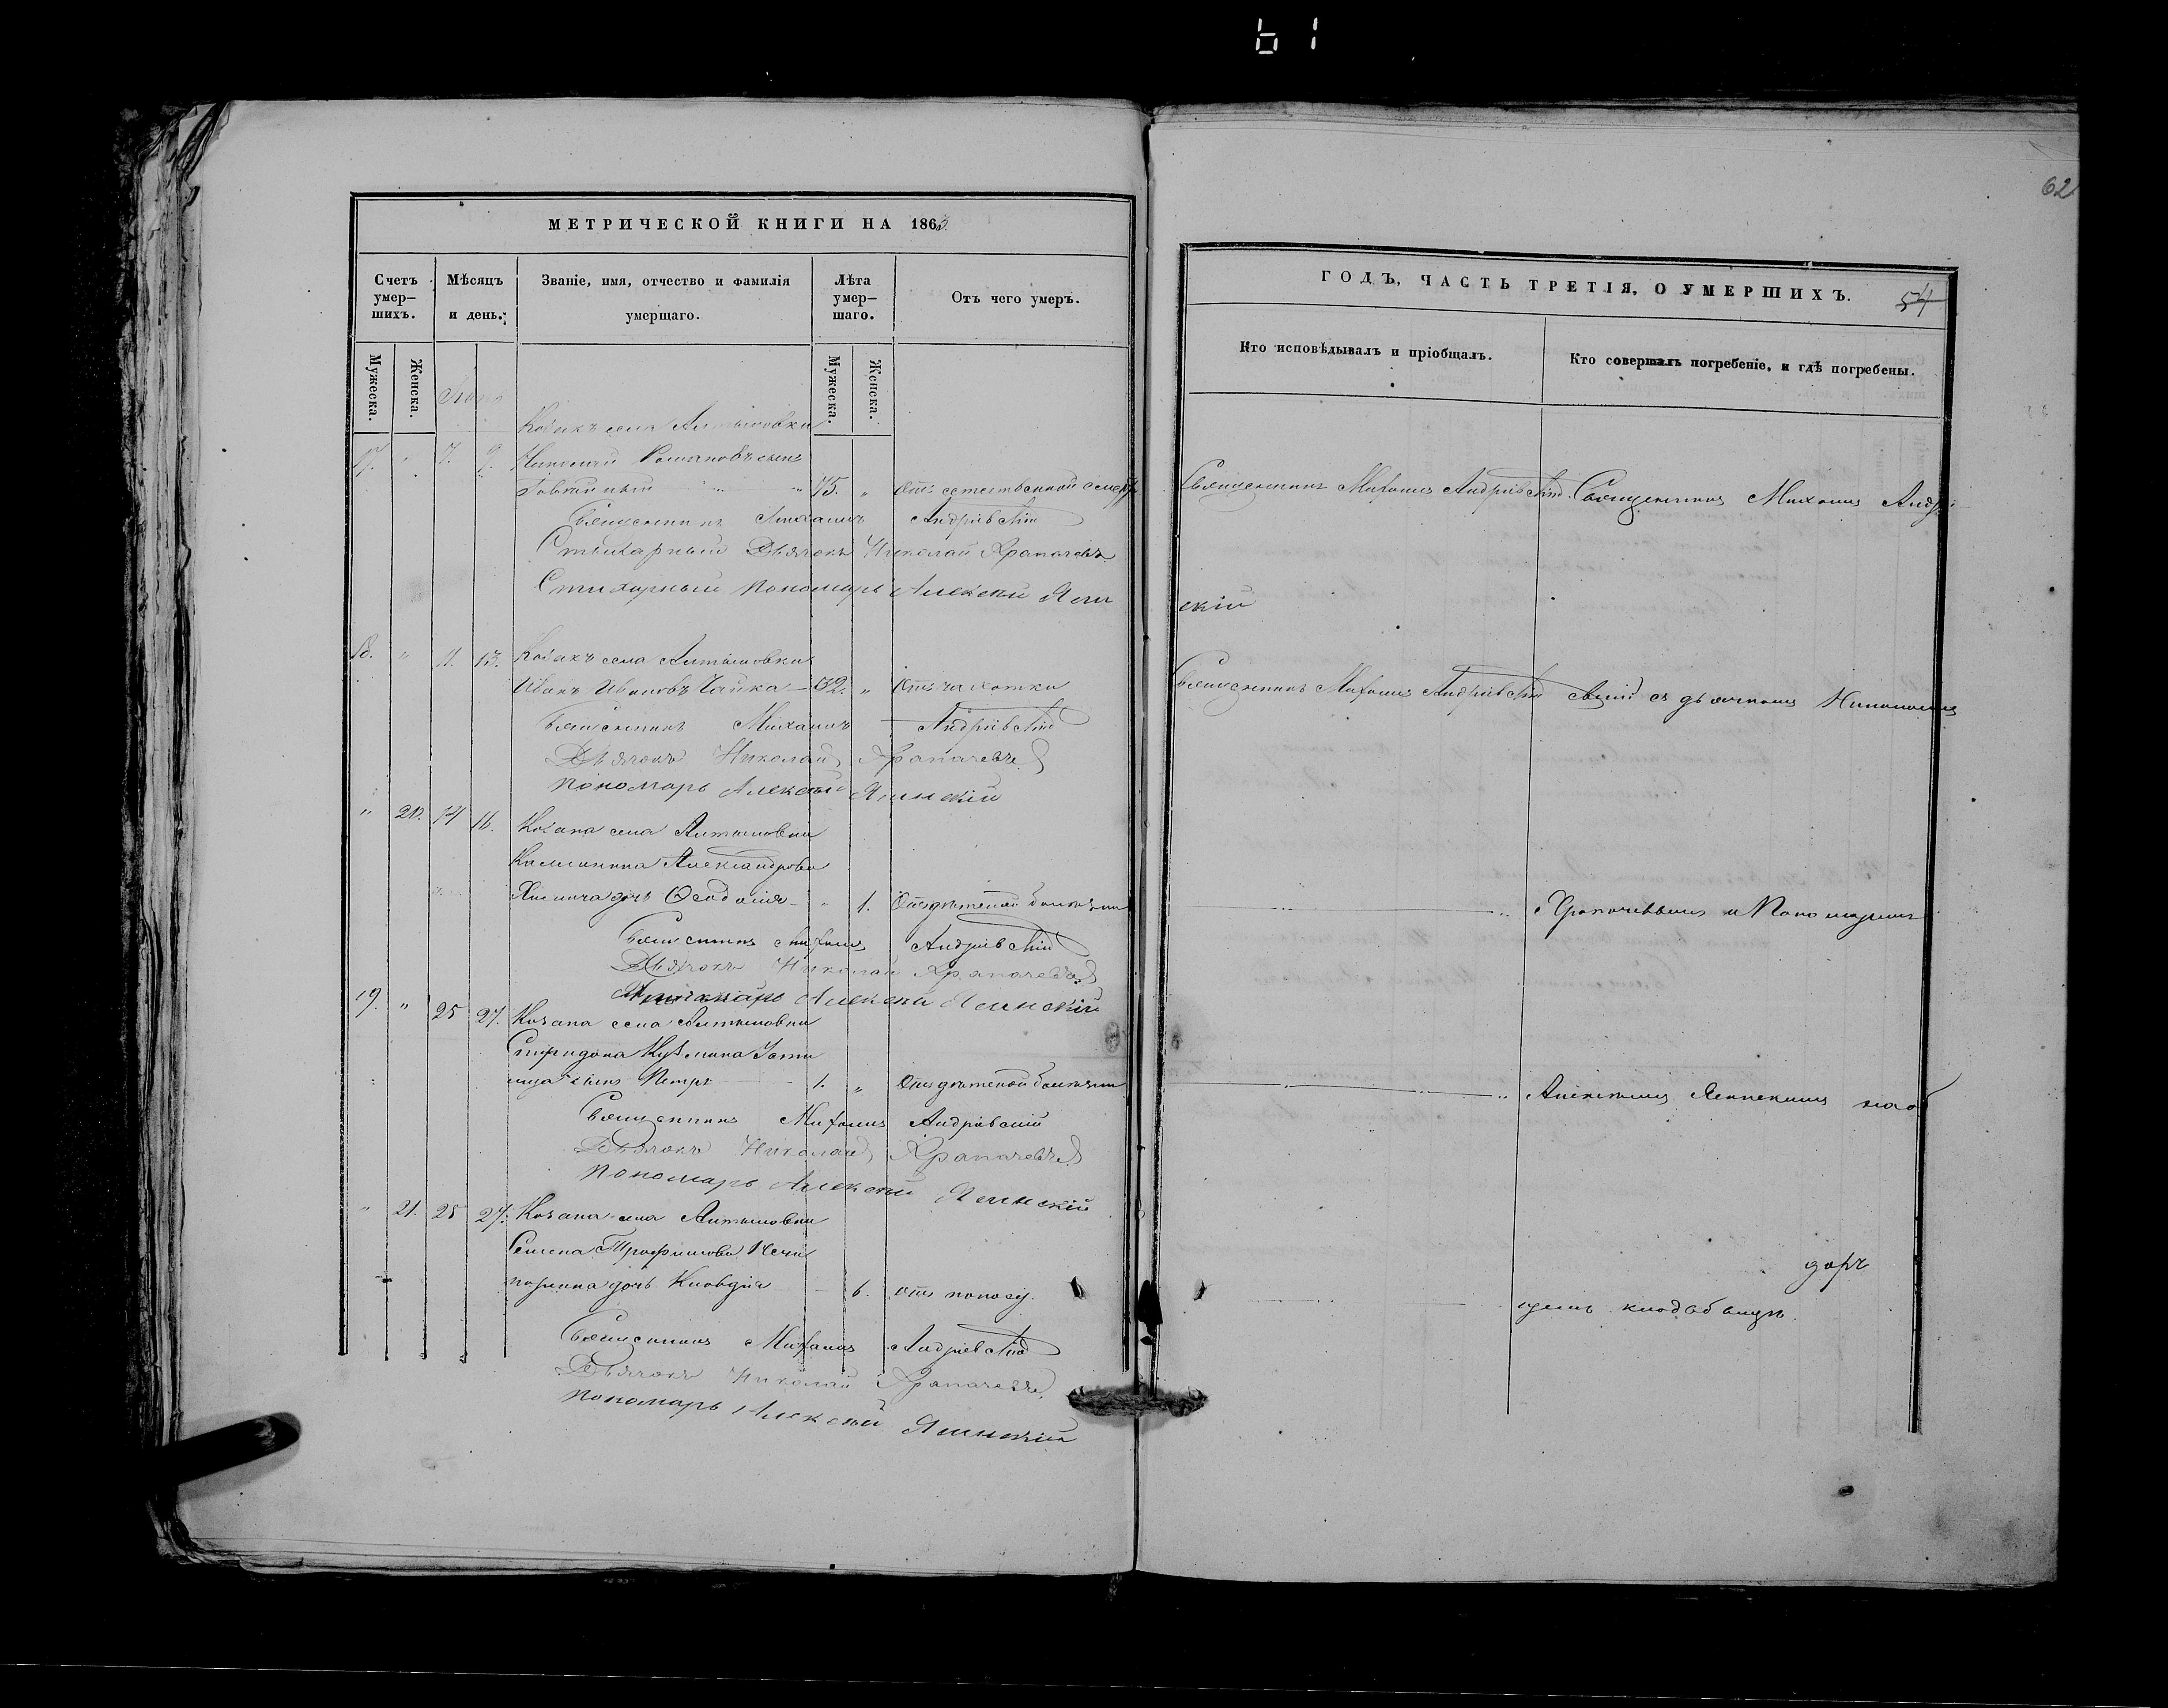 61
62
МЕТРИЧЕСКОЙ КНИГИ НА 1863
Счетъ умер–шихъ.
Мѣсяцъ и день.
Званіе, имя, отчество и фамилія умершаго.
Лѣта умер–шаго.
Отъ чего умеръ.
Мужеска.
Женска.
Мужеска.
Женска.
Козакъ села Алтыновки
17. " 7. 9. Николай Романовъ сынъ
75. " Отъ естественной смерт
Священникъ Михаилъ Андріевскій
Стихарный Дьячокъ Николай Храпачевъ
Стихарный Пономарь Алексей Ясин
18. " 11. 13. Козакъ села Алтыновки
Иванъ Ивановъ Чайка – 32. " Отъ чахотки
Священникъ Михаилъ Андріевскій
Дьячокъ Николай Храпачевъ
Пономарь Алексей Ясинскій
" 20. 14 16. Козака села Алтыновки
Александрова
дочь Феодосія " 1. Отъ дѣтской болѣзни
Священникъ Михаилъ Андріевскій
Дьячокъ Николай Храпачевъ
Пономарь Алексей Ясинскій
19. " 25 27. Козака села Алтыновки
Спиридона Кузмина Усти
сынъ Петръ 1. " Отъ дѣтской болѣзни
Священникъ Михаилъ Андріевскій
Дьячокъ Николай Храпачевъ
Пономарь Алексей Ясинскій
" 21. 25 27. Козака села Алтыновки
Семена Трофимова Нечи
поренка дочь Клавдія 6. отъ поносу.
Священникъ Михаилъ Андріевскій
Дьячокъ Николай Храпачевъ
Пономарь Алексей Ясинскій
ГОДЪ, ЧАСТЬ ТРЕТІЯ, О УМЕРШИХЪ.
54
Кто исповѣдывалъ и пріобщалъ.
Кто совершалъ погребеніе, и гдѣ погребены.
Священникъ Михаилъ Андріевскій. Священникъ Михаилъ Андрі
скій
Священникъ Михаилъ Андріевскій съ дьячкомъ Николаемъ
Храпачевымъ и Пономаремъ
Алексеемъ Ясинскимъ на об
щемъ кладбищѣ.